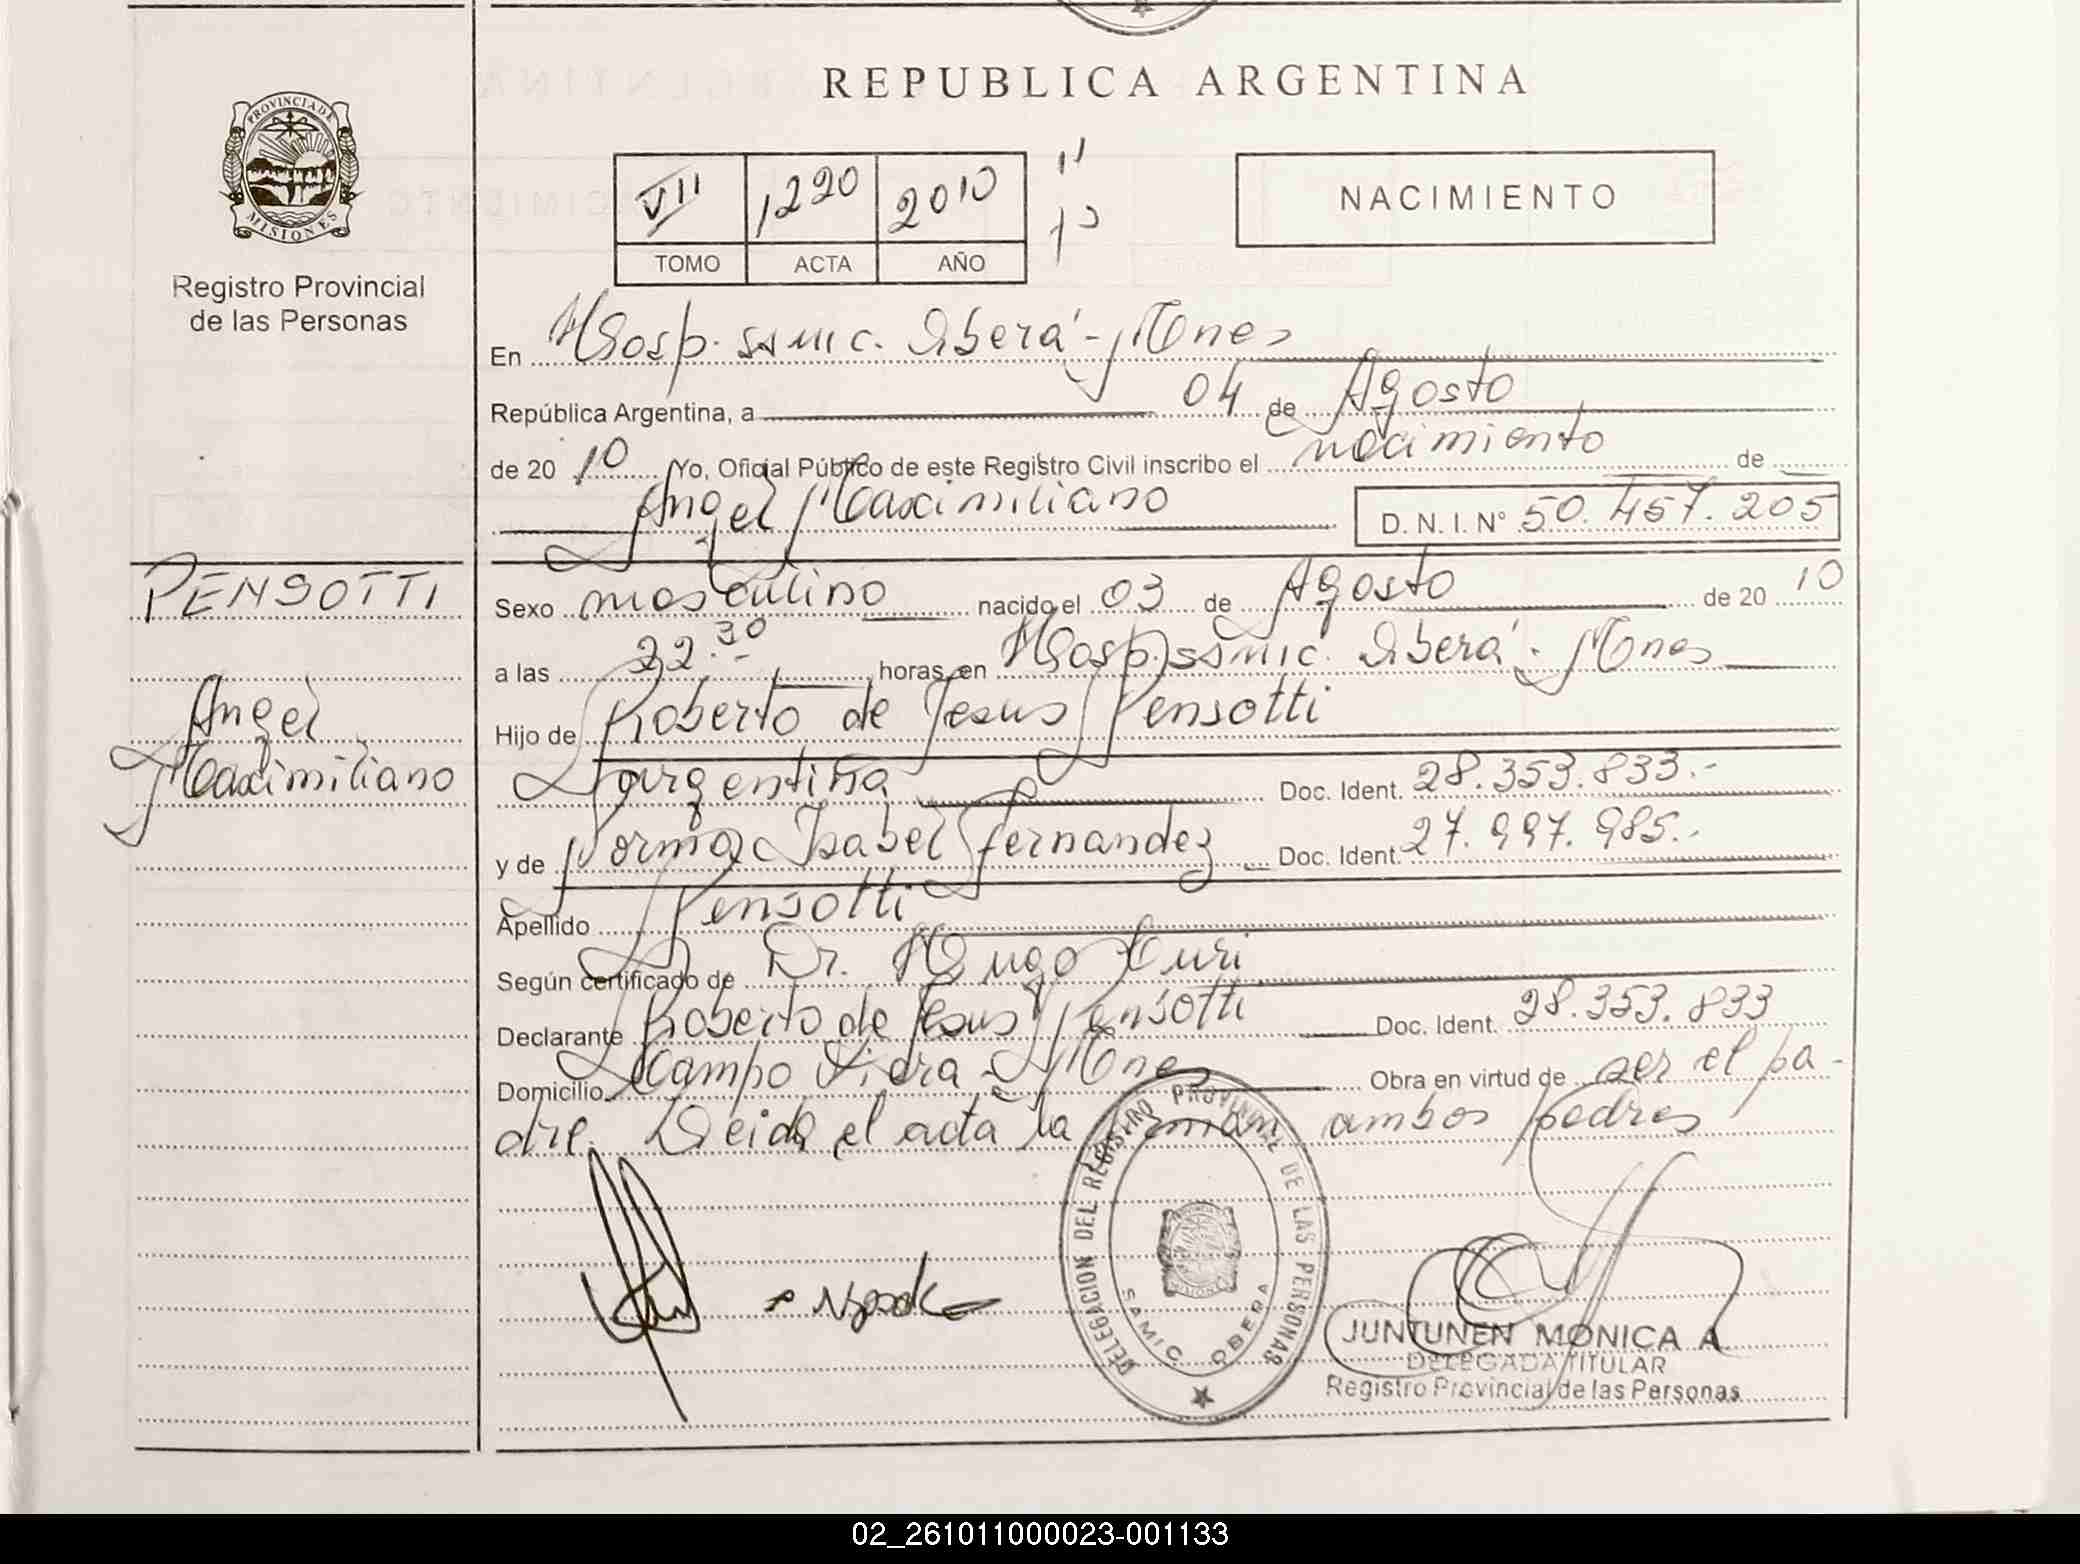 REPUBLICA ARGENTINA
PROVINCIA DE
MISIONES
Registro Provincial
de las Personas
VII 1220 2010
TOMO ACTA AÑO
NACIMIENTO
En Hosp. ssmic. Oberá - Mnes
República Argentina, a 04 de Agosto
de 20 10 Yo, Oficial Público de este Registro Civil inscribo el nacimiento de
Angel Maximiliano D. N. I. Nº 50.457.205
PENSOTTI
Angel
Maximiliano
Sexo masculino nacido el 03 de Agosto de 20 10
a las 22.30 horas, en Hosp. ssmic. Oberá - Mnes
Hijo de Roberto de Jesus Pensotti
argentina Doc. Ident. 28.353.833.-
y de Norma Isabel Fernandez Doc. Ident. 27.997.985.-
Apellido Pensotti
Según certificado de Dr. Hugo
Declarante Roberto de Jesus Pensotti Doc. Ident. 28.353.833
Domicilio Campo Viera - Mnes Obra en virtud de ser el pa-
dre. Leida el acta la firman ambos padres
DELEGACION DEL REGISTRO PROVINCIAL DE LAS PERSONAS
SAMIC OBERA
JUNTUNEN MONICA A
DELEGADA TITULAR
Registro Provincial de las Personas
02_261011000023-001133